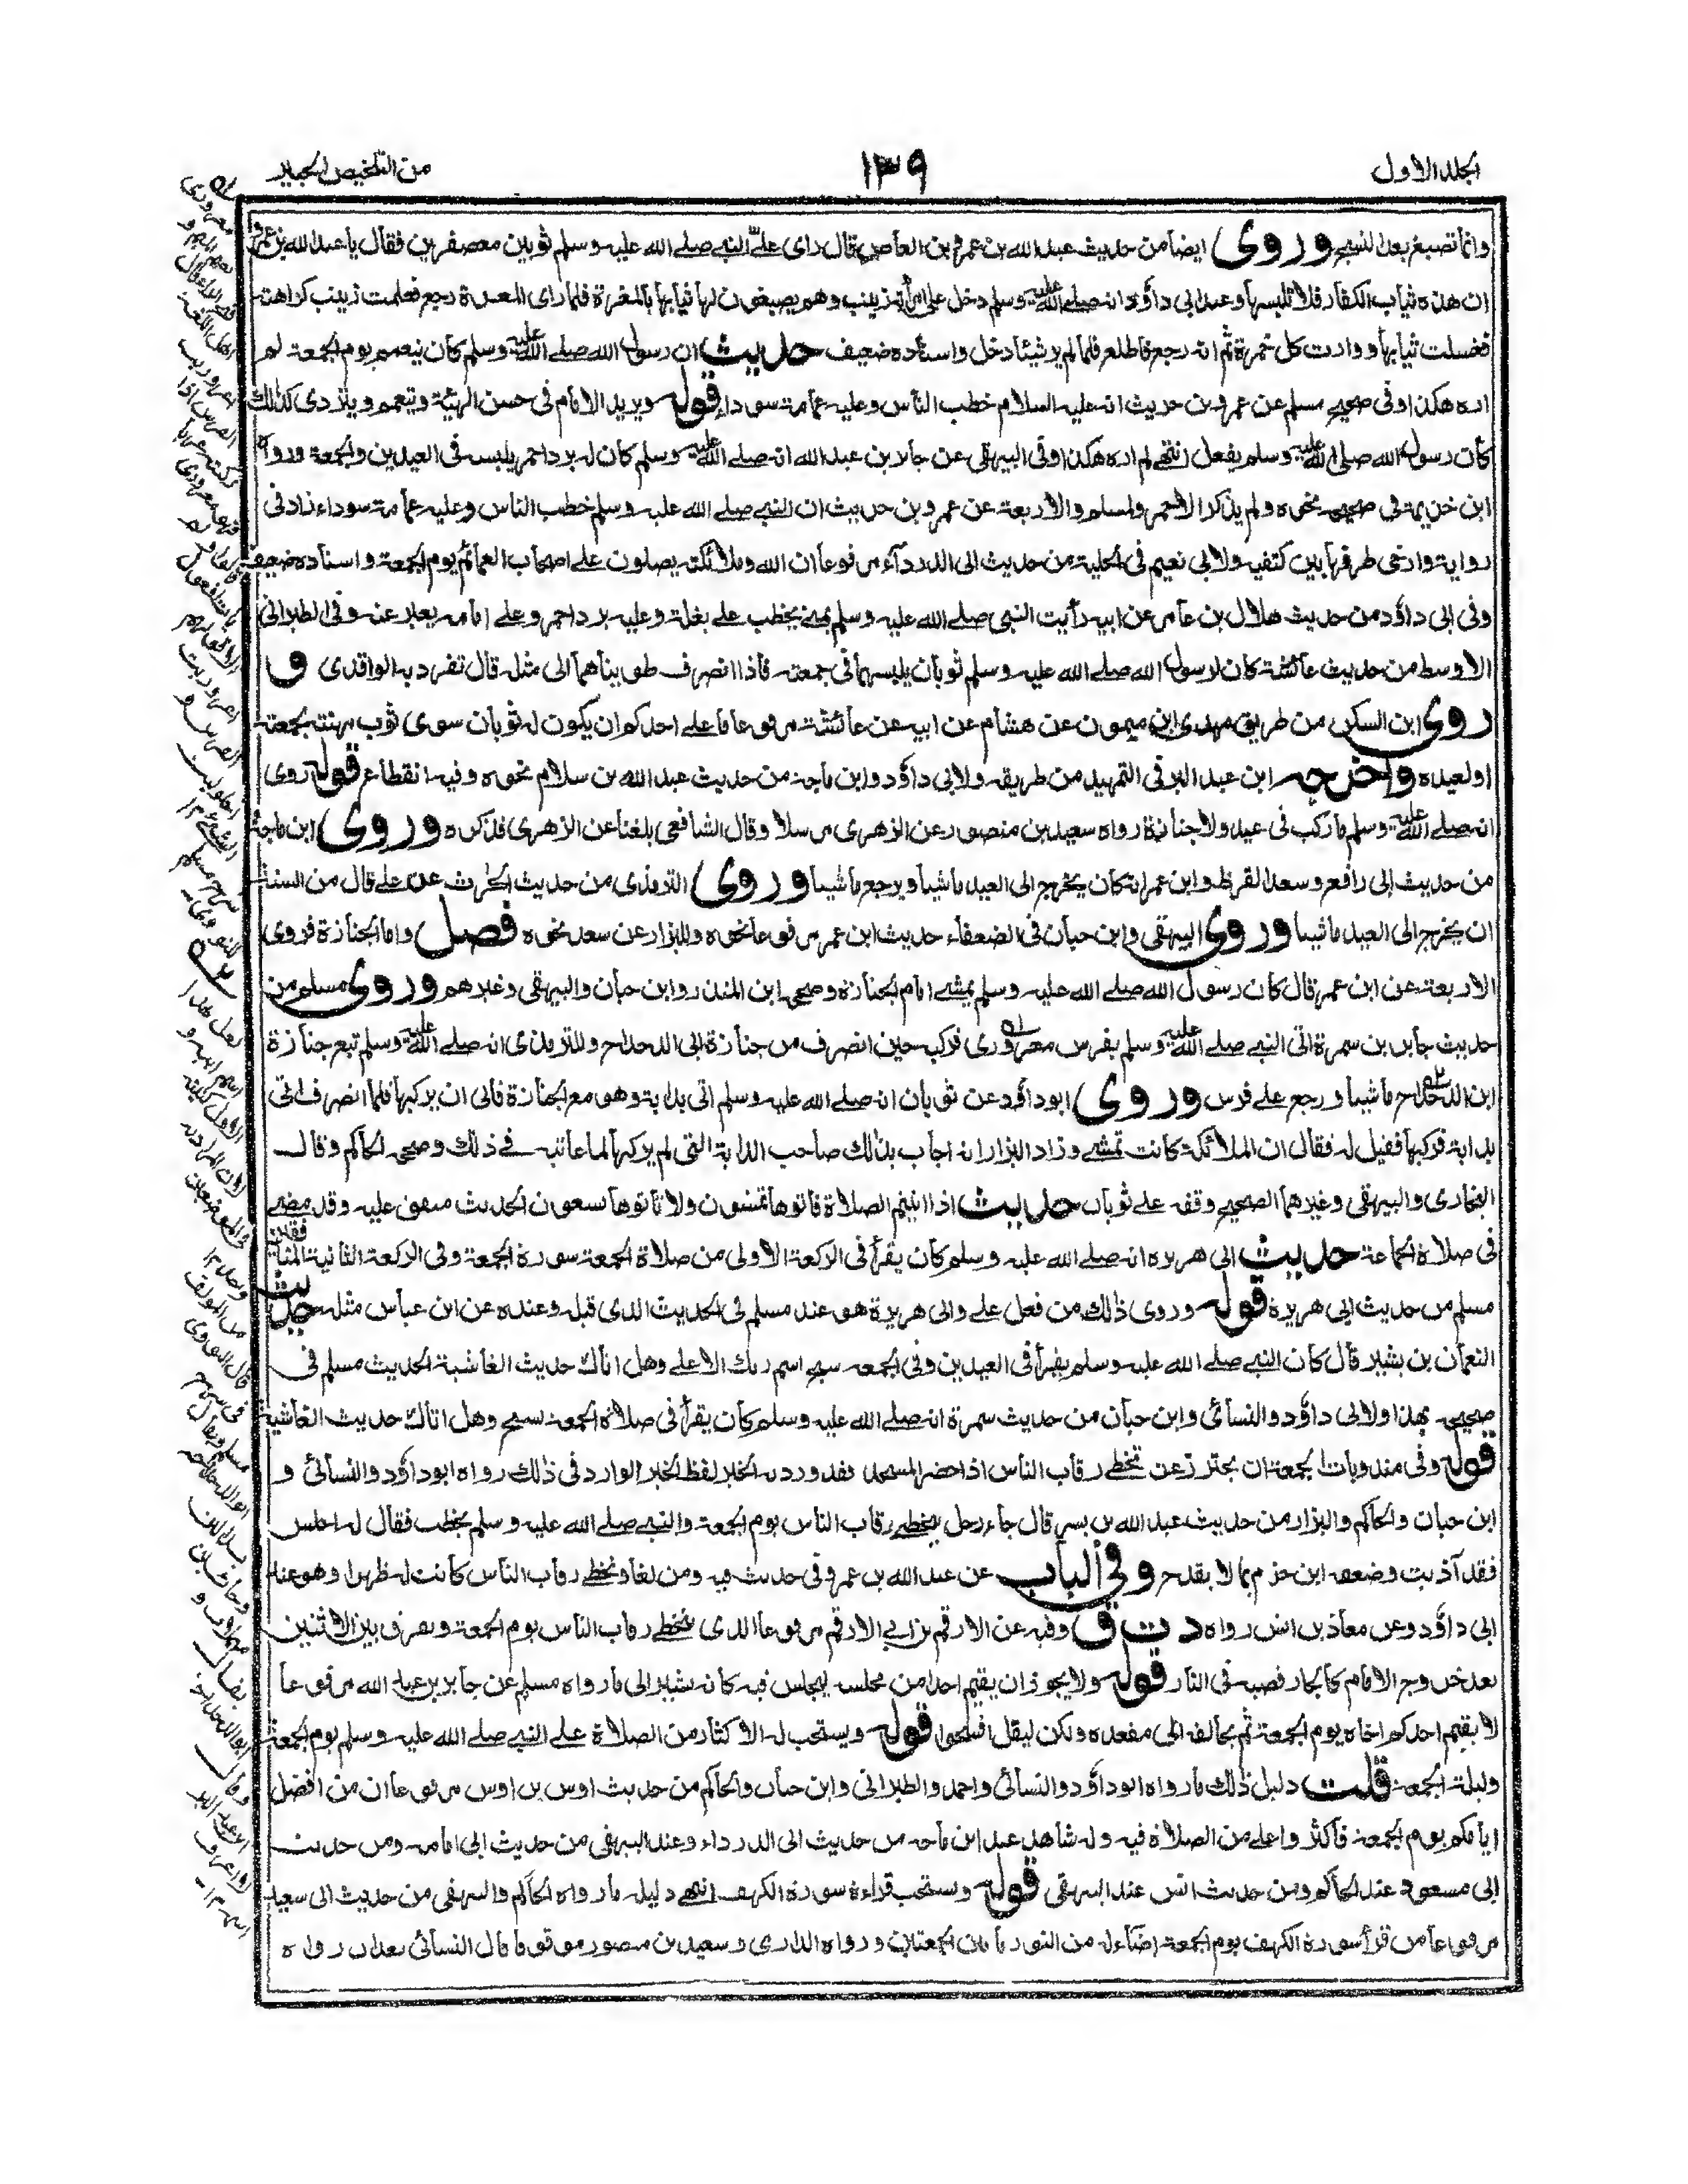 الجلد الاول
١٣٩
من التلخيص الحبير
وانما تصبغ بعد النسج وروى ايضا من حديث عبد الله بن عمرو بن العاص قال رأى علىّ النبي صلى الله عليه وسلم ثوبين معصفرين فقال يا عبد الله بن عمرو
ان هذه ثياب الكفار فلا تلبسها وعند ابى داؤد انه صلى الله عليه وسلم دخل على امرأته زينب وهم يصبغون لها ثيابها بالمغرة فلما رأى المغرة رجع فعلمت زينب كراهته
فغسلت ثيابها ووارت كل حمرة ثم انه رجع فاطلع فلما لم ير شيئا دخل واسناده ضعيف حديث ان رسول الله صلى الله عليه وسلم كان يتعمم يوم الجمعة لم
اره هكذا وفى صحيح مسلم عن عمرو بن حريث انه عليه السلام خطب الناس وعليه عمامة سوداء قوله ويزيد الامام فى حسن الهيئة ويتعمم ويرتدى كذلك
كان رسول الله صلى الله عليه وسلم يفعل انتهى لم اره هكذا وفى البيهقى عن جابر بن عبد الله انه صلى الله عليه وسلم كان له برد احمر يلبسه فى العيدين والجمعة ورواه
ابن خزيمة فى صحيحه نحوه ولم يذكر الاحمر ولمسلم والاربعة عن عمرو بن حريث ان النبي صلى الله عليه وسلم خطب الناس وعليه عمامة سوداء زاد فى
رواية وارخى طرفها بين كتفيه ولابى نعيم فى الحلية من حديث ابى الدرداء مرفوعا ان الله وملائكته يصلون على اصحاب العمائم يوم الجمعة واسناده ضعيف
وفى ابى داؤد من حديث هلال بن عامر عن ابيه رأيت النبى صلى الله عليه وسلم بمنى يخطب على بغلة وعليه برد احمر وعلى امامه يعبر عنه وفى الطبرانى
الاوسط من حديث عائشة كان لرسول الله صلى الله عليه وسلم ثوبان يلبسهما فى جمعته فاذا انصرف طويناهما الى مثله قال تفرد به الواقدى و
روى ابن السكن من طريق مهدى ابن ميمون عن هشام عن ابيه عن عائشة مرفوعا ما على احدكم ان يكون له ثوبان سوى ثوب مهنته لجمعته
او لعيده واخرجه ابن عبد البر فى التمهيد من طريقه ولابى داؤد وابن ماجه من حديث عبد الله بن سلام نحوه وفيه انقطاع قوله روى
انه صلى الله عليه وسلم ما ركب فى عيد ولا جنازة رواه سعيد بن منصور عن الزهرى مرسلا وقال الشافعى بلغنا عن الزهرى فذكره وروى ابن ماجة
من حديث ابى رافع وسعد القرظ وابن عمر انه كان يخرج الى العيد ماشيا ويرجع ماشيا وروى الترمذى من حديث الحرث عن على قال من السنة
ان يخرج الى العيد ماشيا وروى البيهقى وابن حبان فى الضعفاء حديث ابن عمر مرفوعا نحوه وللبزار عن سعد نحوه فصل واما الجنازة فروى
الاربعة عن ابن عمر قال كان رسول الله صلى الله عليه وسلم يمشى امام الجنازة وصححه ابن المنذر وابن حبان والبيهقى وغيرهم وروى مسلم من
حديث جابر بن سمرة اتى النبي صلى الله عليه وسلم بفرس معرورى فركب حين انصرف من جنازة ابى الدحداح وللترمذى انه صلى الله عليه وسلم تبع جنازة
ابن الدحداح ماشيا ورجع على فرس وروى ابو داؤد عن ثوبان انه صلى الله عليه وسلم اتى بدابة وهو مع الجنازة فابى ان يركبها فلما انصرف اتى
بدابة فركبها فقيل له فقال ان الملائكة كانت تمشى وزاد البزار انه اجاب بذلك صاحب الدابة التى لم يركبها لما عاتبه فى ذلك وصححه الحاكم وقال
البخارى والبيهقى وغيرهما الصحيح وقفه على ثوبان حديث اذا اتيتم الصلاة فاتوها تمشون ولا تاتوها تسعون الحديث متفق عليه وقد مضى
فى صلاة الجماعة حديث ابى هريرة انه صلى الله عليه وسلم كان يقرأ فى الركعة الاولى من صلاة الجمعة سورة الجمعة وفى الركعة الثانية المنافقين
مسلم من حديث ابى هريرة قوله وروى ذلك من فعل على وابى هريرة هو عند مسلم فى الحديث الذى قبله وعنده عن ابن عباس مثله حديث
النعمان بن بشير قال كان النبي صلى الله عليه وسلم يقرأ فى العيدين وفى الجمعه سبح اسم ربك الاعلى وهل اتاك حديث الغاشية الحديث مسلم فى
صحيحه بهذا ولابى داؤد والنسائى وابن حبان من حديث سمرة انه صلى الله عليه وسلم كان يقرأ فى صلاة الجمعة بسبح وهل اتاك حديث الغاشية
قوله وفى مندوبات الجمعة ان يحترز عن تخطى رقاب الناس اذا حضر المسجد فقد ورد به الخبر لفظ الخبر الوارد فى ذلك رواه ابو داؤد والنسائى و
ابن حبان والحاكم والبزار من حديث عبد الله بن بسر قال جاء رجل يتخطى رقاب الناس يوم الجمعة والنبي صلى الله عليه وسلم يخطب فقال له اجلس
فقد آذيت وضعفه ابن حزم بما لا يقدح وفى الباب عن عبد الله بن عمرو فى حديث فيه ومن لغا وتخطى رقاب الناس كانت له ظهرا وهو عند
ابى داؤد وعن معاذ بن انس رواه د ت ق وفيه عن الارقم بن ابى الارقم مرفوعا الذى يتخطى رقاب الناس يوم الجمعة ويفرق بين الاثنين
بعد خروج الامام كالجار قصبه فى النار قوله ولا يجوز ان يقيم احدا من مجلسه ليجلس فيه كانه يشير الى ما رواه مسلم عن جابر بن عبد الله مرفوعا
لا يقيم احدكم اخاه يوم الجمعة ثم يخالف الى مقعده ولكن ليقل افسحوا قوله ويستحب له الاكثار من الصلاة على النبي صلى الله عليه وسلم يوم الجمعة
وليلة الجمعة قلت دليل ذلك ما رواه ابو داؤد والنسائى واحمد والطبرانى وابن حبان والحاكم من حديث اوس بن اوس مرفوعا ان من افضل
ايامكم يوم الجمعة فاكثروا على من الصلاة فيه وله شاهد عند ابن ماجه من حديث ابى الدرداء وعند البيهقى من حديث ابى امامه ومن حديث
ابى مسعود عند الحاكم ومن حديث انس عند البيهقى قوله ويستحب قراءة سورة الكهف انتهى دليله ما رواه الحاكم والبيهقى من حديث ابى سعيد
مرفوعا من قرأ سورة الكهف يوم الجمعة اضاء له من النور ما بين الجمعتين ورواه الدارمى وسعيد بن منصور موقوفا قال النسائى بعد ان رواه